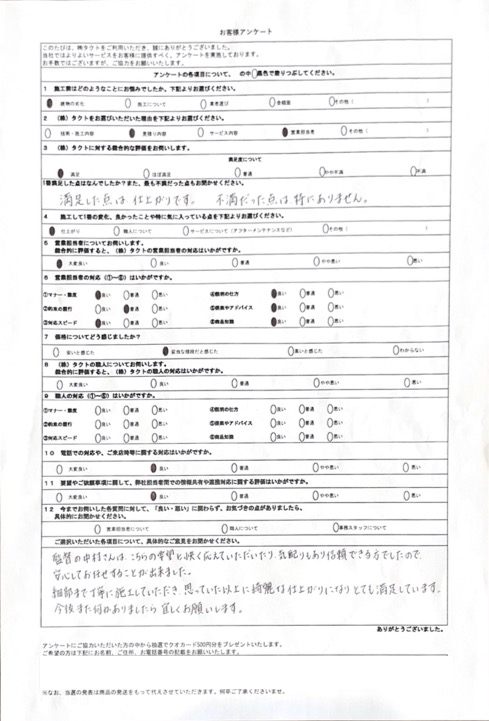 お客様アンケート
このたびは、㈱タクトをご利用いただき、誠にありがとうございました。
当社ではよりよいサービスをお客様に提供すべく、アンケートを実施しております。
お手数ではございますが、ご協力をお願いいたします。
アンケートの各項目について、 の中 黒色で塗りつぶしてください。
1 施工前はどのようなことにお悩みでしたか。下記よりお選びください。
建物の劣化 施工について 業者選び 金銭面 その他( )
2 (株)タクトをお選びいただいた理由を下記よりお選びください。
技術・施工内容 見積り内容 サービス内容 営業担当者 その他( )
3 (株)タクトに対する総合的な評価をお伺いします。
満足度について
満足 ほぼ満足 普通 やや不満 不満
1番満足した点はなんでしたか?また、最も不満だった点もお聞かせください。
満足した点は仕上がりです。 不満だった点は特にありません。
4 施工して1番の変化、良かったことや特に気に入っている点を下記よりお選びください。
仕上がり 職人について サービスについて(アフターメンテナンスなど) その他( )
5 営業担当者についてお伺いします。
総合的に評価すると、(株)タクトの営業担当者の対応はいかがですか。
大変良い 良い 普通 やや悪い 悪い
6 営業担当者の対応(①～⑥)はいかがですか。
①マナー・態度 良い 普通 悪い ④説明の仕方 良い 普通 悪い
②約束の履行 良い 普通 悪い ⑤提案やアドバイス 良い 普通 悪い
③対応スピード 良い 普通 悪い ⑥商品知識 良い 普通 悪い
7 価格についてどう感じましたか?
安いと感じた 妥当な値段だと感じた 高いと感じた わからない
8 (株)タクトの職人についてお伺いします。
総合的に評価すると、(株)タクトの職人の対応はいかがですか。
大変良い 良い 普通 やや悪い 悪い
9 職人の対応(①～⑥)はいかがですか。
①マナー・態度 良い 普通 悪い ④説明の仕方 良い 普通 悪い
②約束の履行 良い 普通 悪い ⑤提案やアドバイス 良い 普通 悪い
③対応スピード 良い 普通 悪い ⑥商品知識 良い 普通 悪い
10 電話での対応や、ご来店時等に関する対応はいかがですか。
大変良い 良い 普通 やや悪い 悪い
11 要望やご依頼事項に関して、弊社担当者間での情報共有や連携対応に関する評価はいかがですか。
大変良い 良い 普通 やや悪い 悪い
12 今までお伺いした各質問に対して、「良い・悪い」に関わらず、お気づきの点がありましたら、
具体的にお聞かせください。
営業担当者について 職人について 事務スタッフについて
ご選択いただいた項目について、具体的なご意見をお聞かせください。
監督の中村さんは、こちらの希望も快く応えていただいたり、気配りもあり信頼できる方でしたので、
安心してお任せすることが出来ました。
細部まで丁寧に施工していただき、思っていた以上に綺麗な仕上がりになりとても満足しています。
今後また何かありましたら宜しくお願いします。
ありがとうございました。
アンケートにご協力いただいた方の中から抽選でクオカード500円分をプレゼントいたします。
ご希望の方は下記にお名前、ご住所、お電話番号の記載をお願いいたします。
※なお、当選の発表は商品の発送をもって代えさせていただきます。何卒ご了承くださいませ。